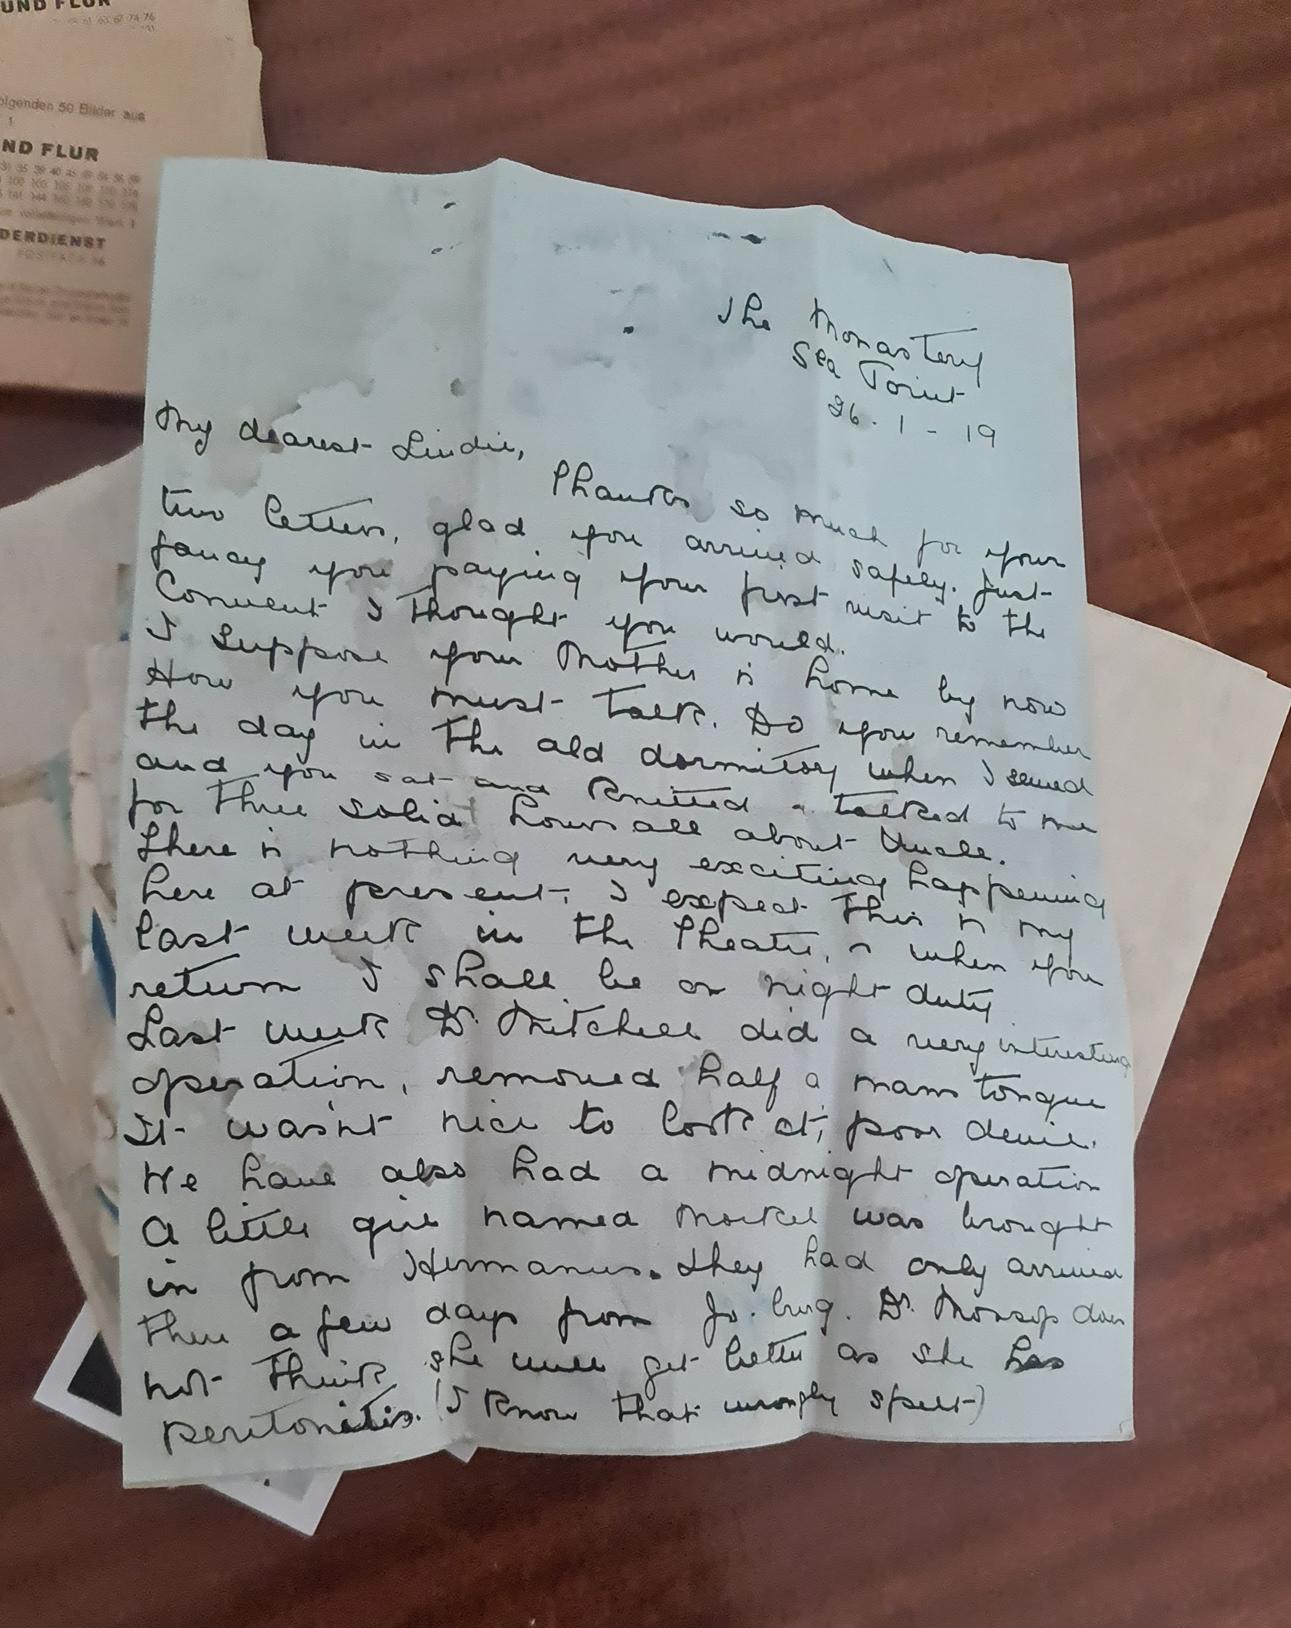 UND FLUR
61 63 67 74 76
olgenden 50 Bilder aus
ND FLUR
35 39 40 45
DERDIENST
POSTFACH
The Monastery
Sea Point
26 . 1 - 19
My dearest Lindie,
Thanks so much for your
two letters, glad you arrived safely. Just
fancy you paying your first visit to the
Convent I thought you would.
I suppose your Mother is home by now
How you must talk. Do you remember
the day in the old dormitory when I sewed
and you sat and knitted & talked to me
for three solid hours all about Uncle.
There is nothing very exciting happening
here at present, I expect this is my
last week in the Theatre, & when you
return I shall be on night duty
Last week Dr. Mitchell did a very interesting
operation, removed half a mans tongue
It wasn't nice to look at, poor devil.
We have also had a midnight operation
A little girl named Morkel was brought
in from Hermanus. They had only arrived
there a few days from Jo. burg. Dr. Mossop does
not think she will get better as she has
peritonitis. (I know that wrongly spelt)